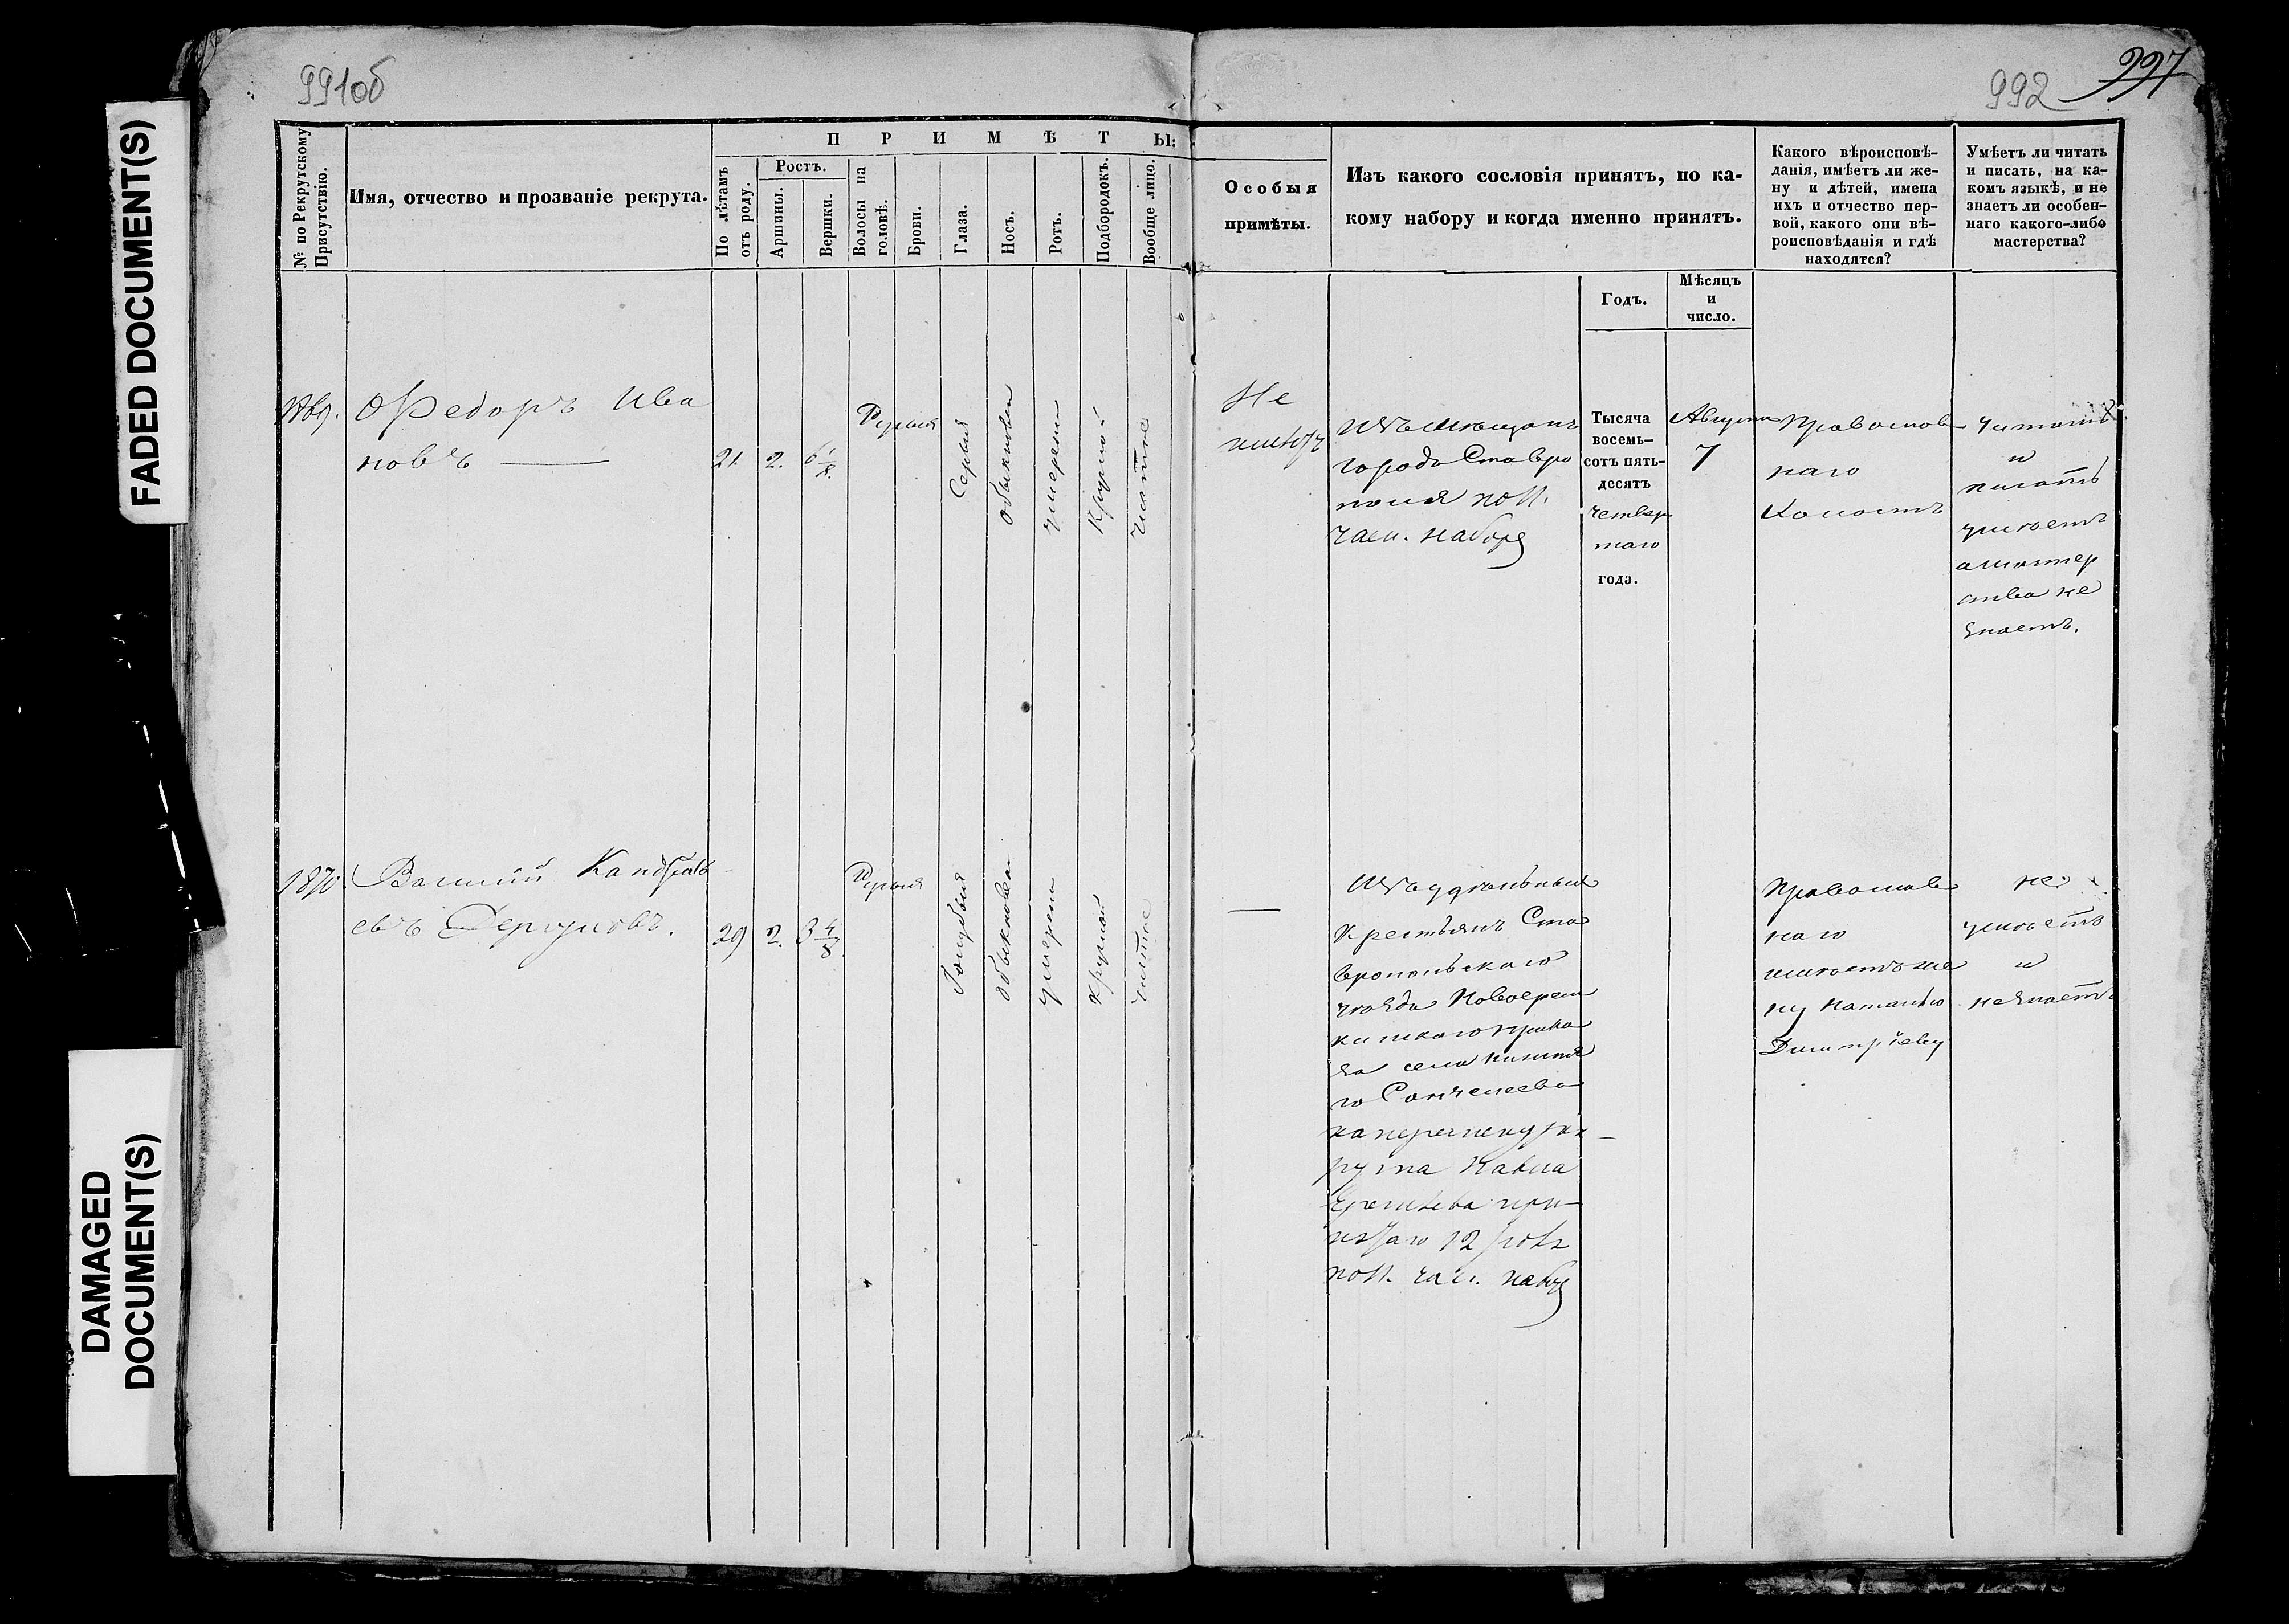 FADED DOCUMENT(S)
DAMAGED
DOCUMENT(S)
991об
992
997
№ по Рекрутскому
Присутствію.
Имя, отчество и прозваніе рекрута.
П Р И М Ѣ Т Ы:
По лѣтамъ
отъ роду.
Ростъ.
Аршины.
Вершки.
Волосы на
головѣ.
Брови.
Глаза.
Носъ.
Ротъ.
Подбородокъ.
Вообще лицо.
Особыя
примѣты.
Изъ какого сословія принятъ, по ка-
кому набору и когда именно принятъ.
Годъ.
Мѣсяцъ
и
число.
Какого вѣроисповѣ-
данія, имѣетъ ли же-
ну и дѣтей, имена
ихъ и отчество пер-
вой, какого они вѣ-
роисповѣданія и гдѣ
находятся?
Умѣетъ ли читать
и писать, на ка-
комъ языкѣ, и не
знаетъ ли особен-
наго какого-либо
мастерства?
1869.
Ѳедоръ Ива
новъ
21.
2.
6 1/8.
Русыя
Серыя
обыкновен
умерен
круглой
чистое
Не
имѣетъ
Изъ мещанъ
города Ставро
поля по 11.
част. набору
Тысяча
восемь-
сотъ пять-
десятъ
четвер
таго
года.
Августа
7
Православ
наго
Холостъ
Читать
и
писать
умѣетъ
а мастер
ства не
знаетъ.
1870.
Василий Кандрать
евъ Дергуновъ.
29
2.
3 4/8.
Русыя
Голубыя
обыкновен
умерен
круглой
чистое
Изъ удѣльныхъ
крестьянъ Ста
вропольскаго
уѣзда Новоерем
кинскаго прика
за села Нижня
го Санчелеева
на перемену рек
рута Павла
Еремѣева при-
нятаго 12 
по 11. част. набору
Православ
наго
имѣетъ же
ну Наталью
Димитріеву
не
умѣетъ
и
не знаетъ